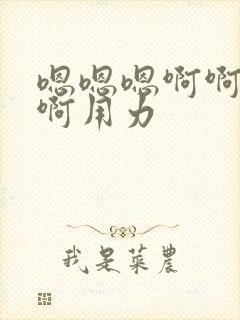 嗯嗯嗯啊啊
啊用力
我是菜農